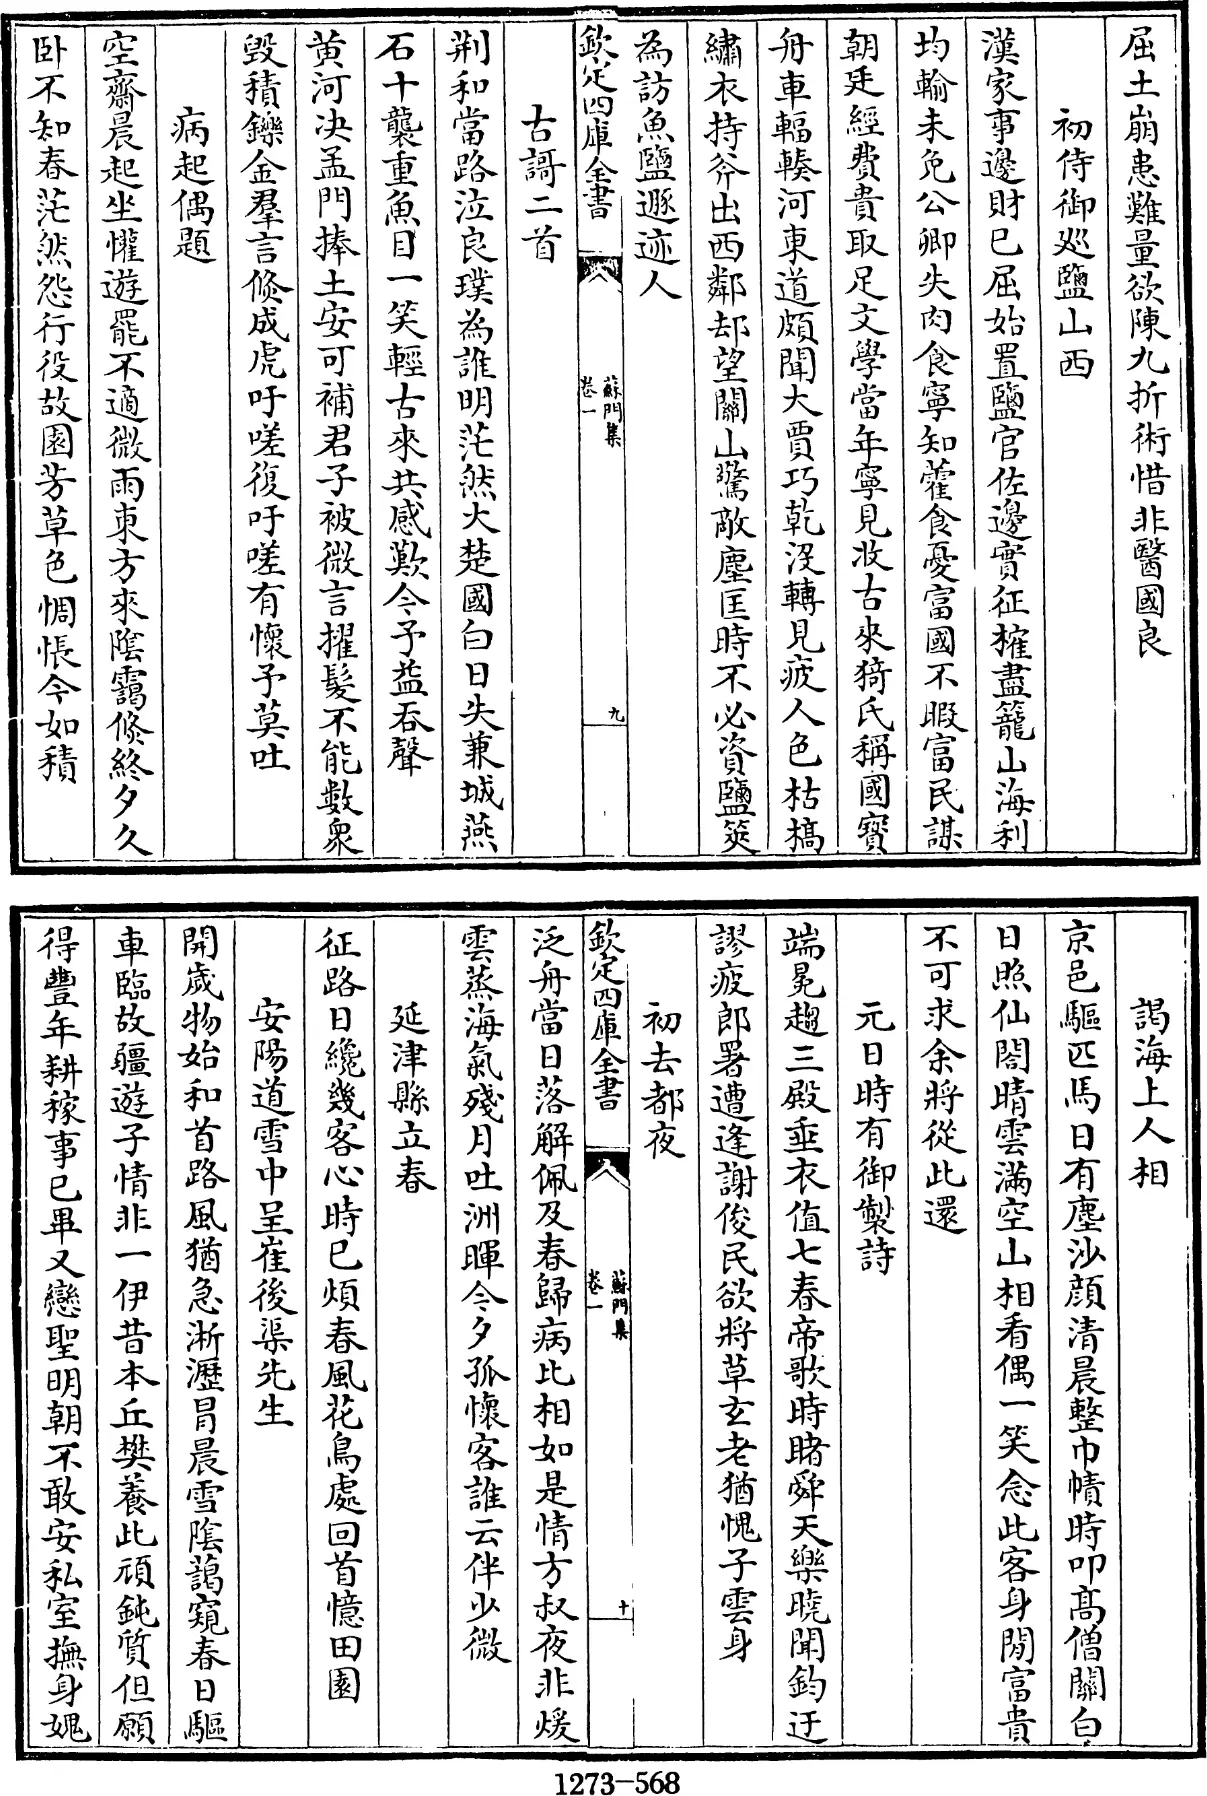 屈土崩患難量欲陳九折術惜非醫國良
初侍御廵鹽山西
漢家事邊財已屈始置鹽官佐邊實征榷盡籠山海利
均輸未免公卿失肉食寧知藿食憂富國不暇富民謀
朝廷經費貴取足文學當年寧見收古來猗氏稱國寳
舟車輻輳河東道頗聞大賈巧乾沒轉見疲人色枯槁
繡衣持斧出西鄰却望關山驚敵塵匡時不必資鹽筴
為訪魚鹽遯迹人
欽定四庫全書
蘇門集
卷一
九
古謌二首
荆和當路泣良璞為誰明茫然大楚國白日失兼城燕
石十襲重魚目一笑輕古來共感歎令予益吞聲
黄河决孟門捧土安可補君子被微言擢髮不能數衆
毀積鑠金羣言倐成虎吁嗟復吁嗟有懷予莫吐
病起偶題
空齋晨起坐懽遊罷不適微雨東方來陰靄倐終夕久
卧不知春茫然怨行役故園芳草色惆悵今如積
謁海上人相
京邑驅匹馬日有塵沙顔清晨整巾幘時叩髙僧關白
日照仙閣晴雲滿空山相看偶一笑念此客身閒富貴
不可求余將從此還
元日時有御製詩
端冕趨三殿垂衣值七春帝歌時睹舜天樂曉聞鈞迂
謬疲郎署遭逢謝俊民欲將草玄老猶愧子雲身
初去都夜
欽定四庫全書
蘇門集
卷一
十
泛舟當日落解佩及春歸病比相如是情方叔夜非煖
雲蒸海氣殘月吐洲暉今夕孤懷客誰云伴少微
延津縣立春
征路日纔幾客心時已煩春風花鳥處回首憶田園
安陽道雪中呈崔後渠先生
開歲物始和首路風猶急淅瀝冐晨雪陰藹窺春日驅
車臨故疆遊子情非一伊昔本丘樊養此頑鈍質但願
得豐年耕稼事已畢又戀聖明朝不敢安私室撫身媿
1273-568